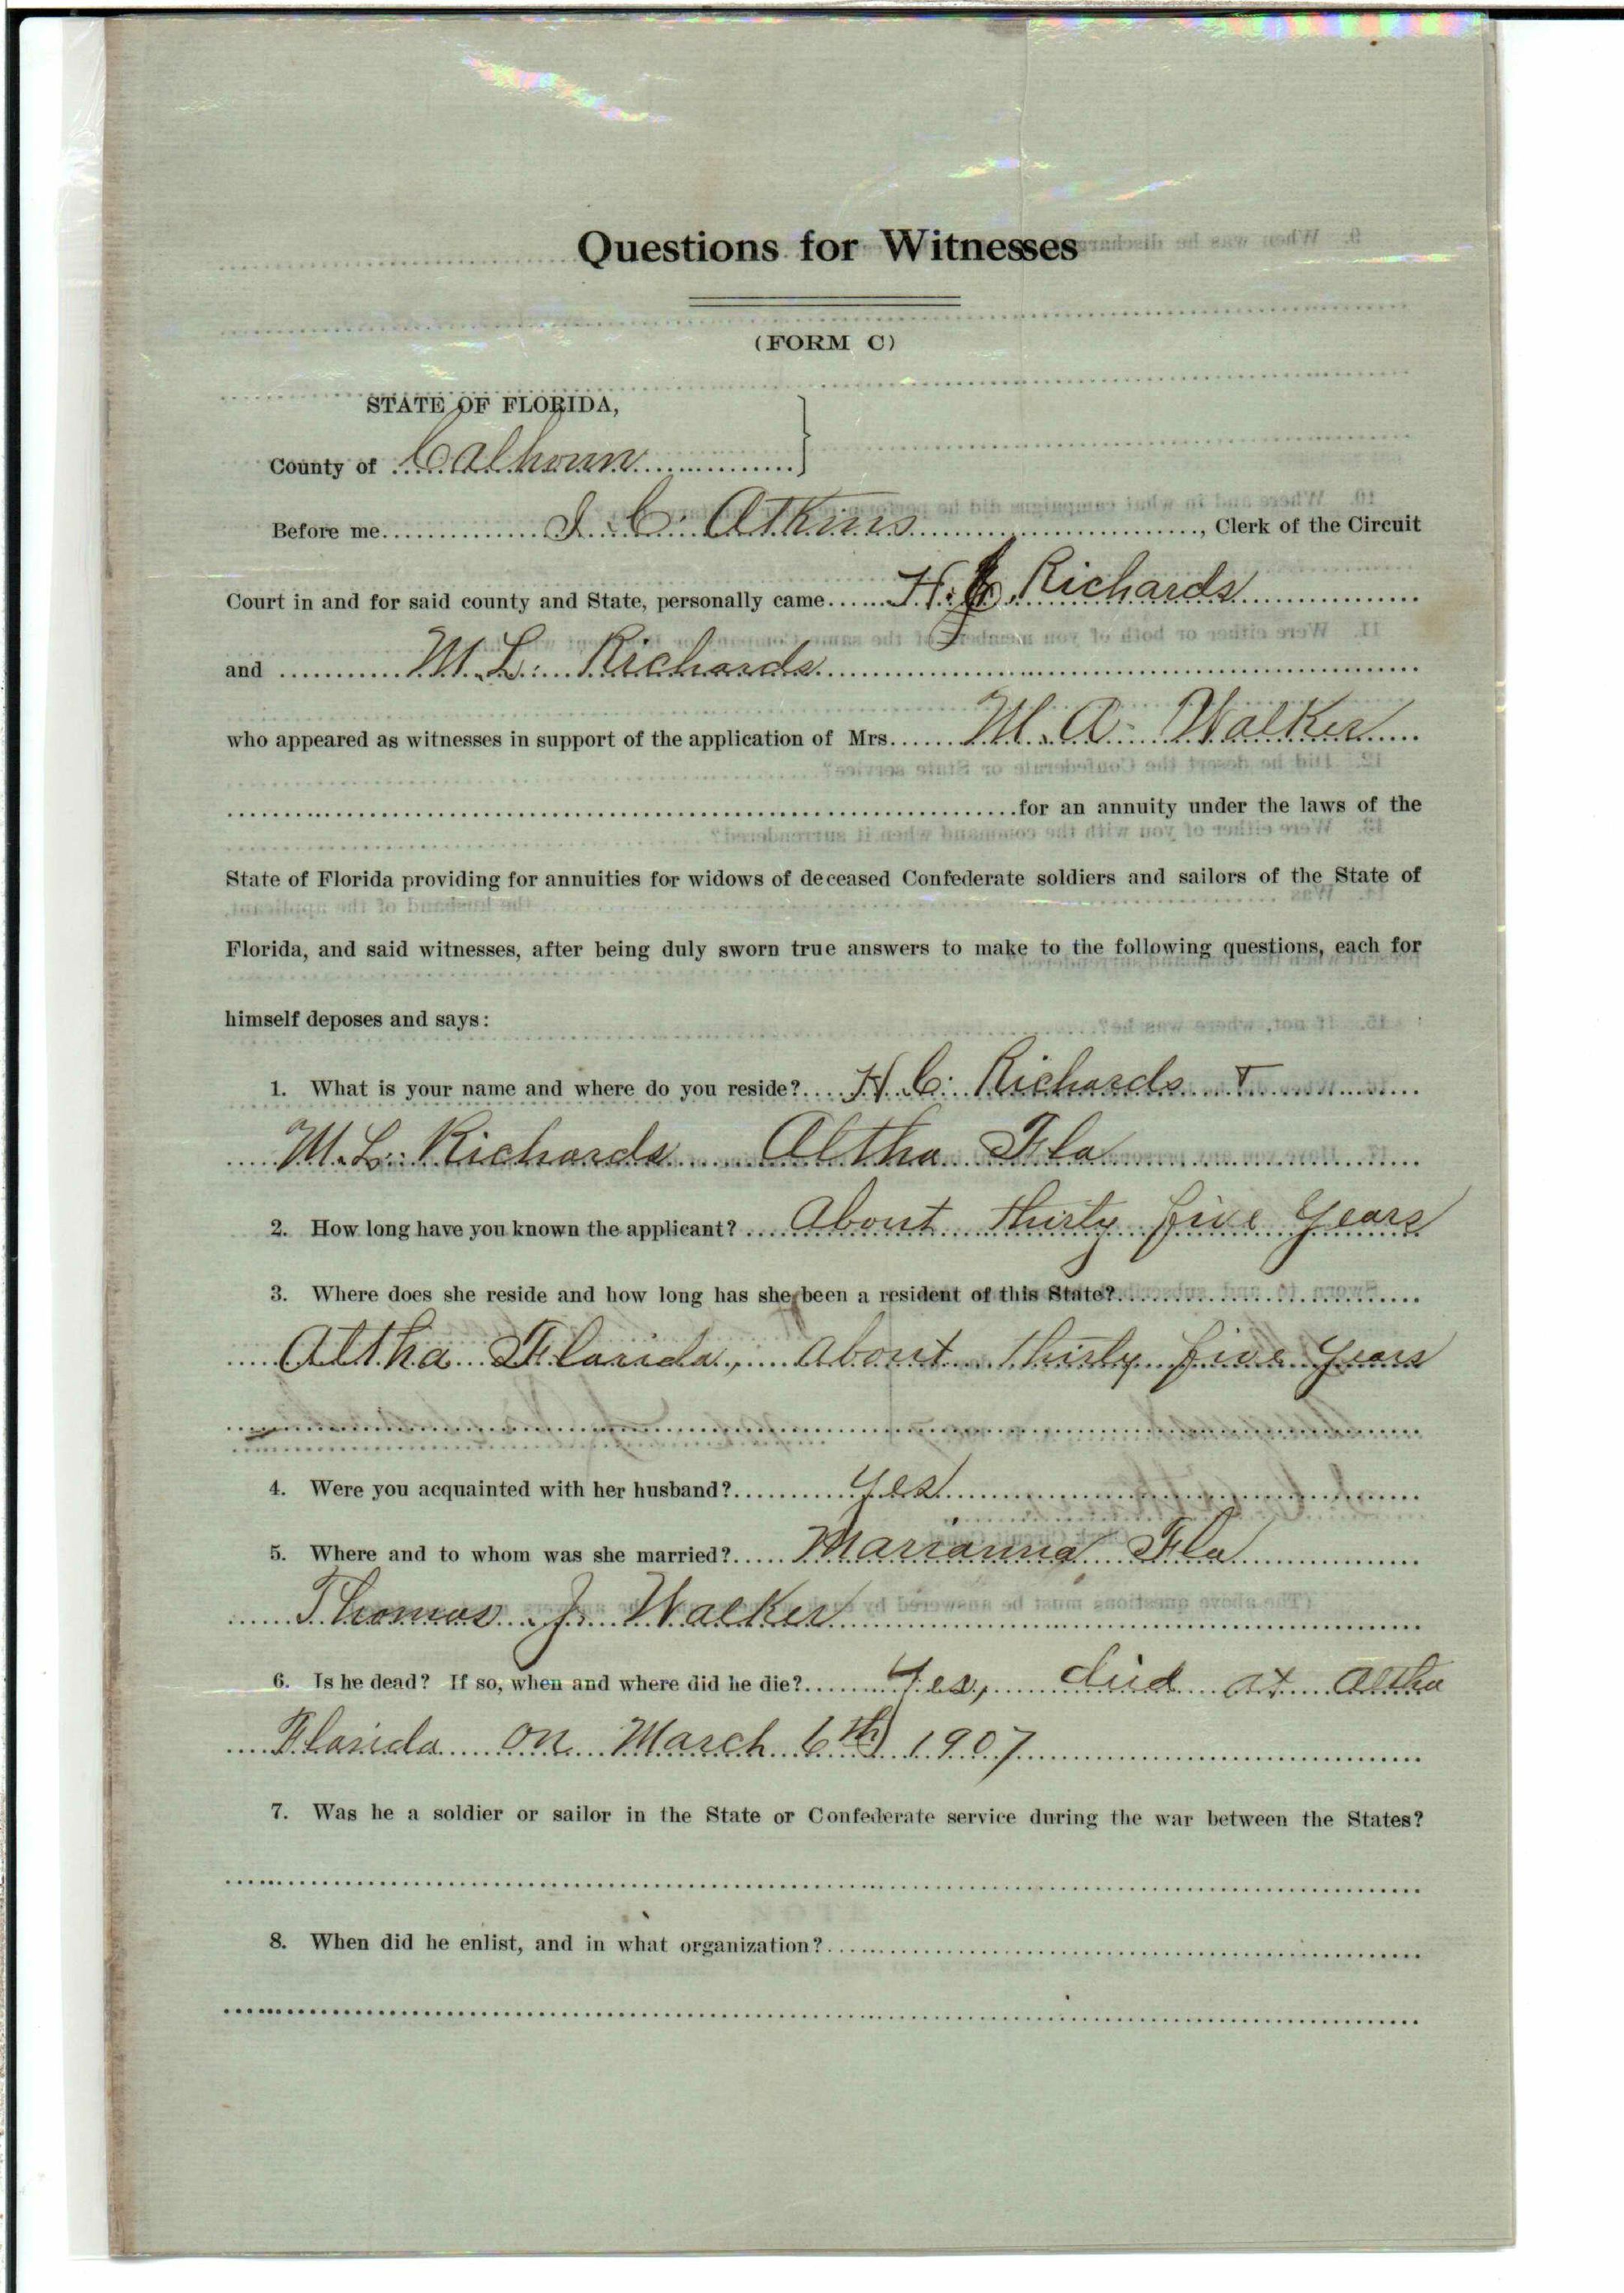 Questions for Witnesses
(FORM C)
STATE OF FLORIDA,
County of Calhoun
Before me J. C. Atkins, Clerk of the Circuit
Court in and for said county and State, personally came H. C. Richards
and M. L. Richards
who appeared as witnesses in support of the application of Mrs. M. A. Walker
for an annuity under the laws of the
State of Florida providing for annuities for widows of deceased Confederate soldiers and sailors of the State of
Florida, and said witnesses, after being duly sworn true answers to make to the following questions, each for
himself deposes and says:
1. What is your name and where do you reside? H. C. Richards +
M. L. Richards Altha Fla
2. How long have you known the applicant? About thirty five years
3. Where does she reside and how long has she been a resident of this State?
Altha Florida, about thirty five years
4. Were you acquainted with her husband? Yes
5. Where and to whom was she married? Marianna Fla
Thomas J. Walker
6. Is he dead? If so, when and where did he die? Yes, died at Altha
Florida on March 6th 1907
7. Was he a soldier or sailor in the State or Confederate service during the war between the States?
8. When did he enlist, and in what organization?